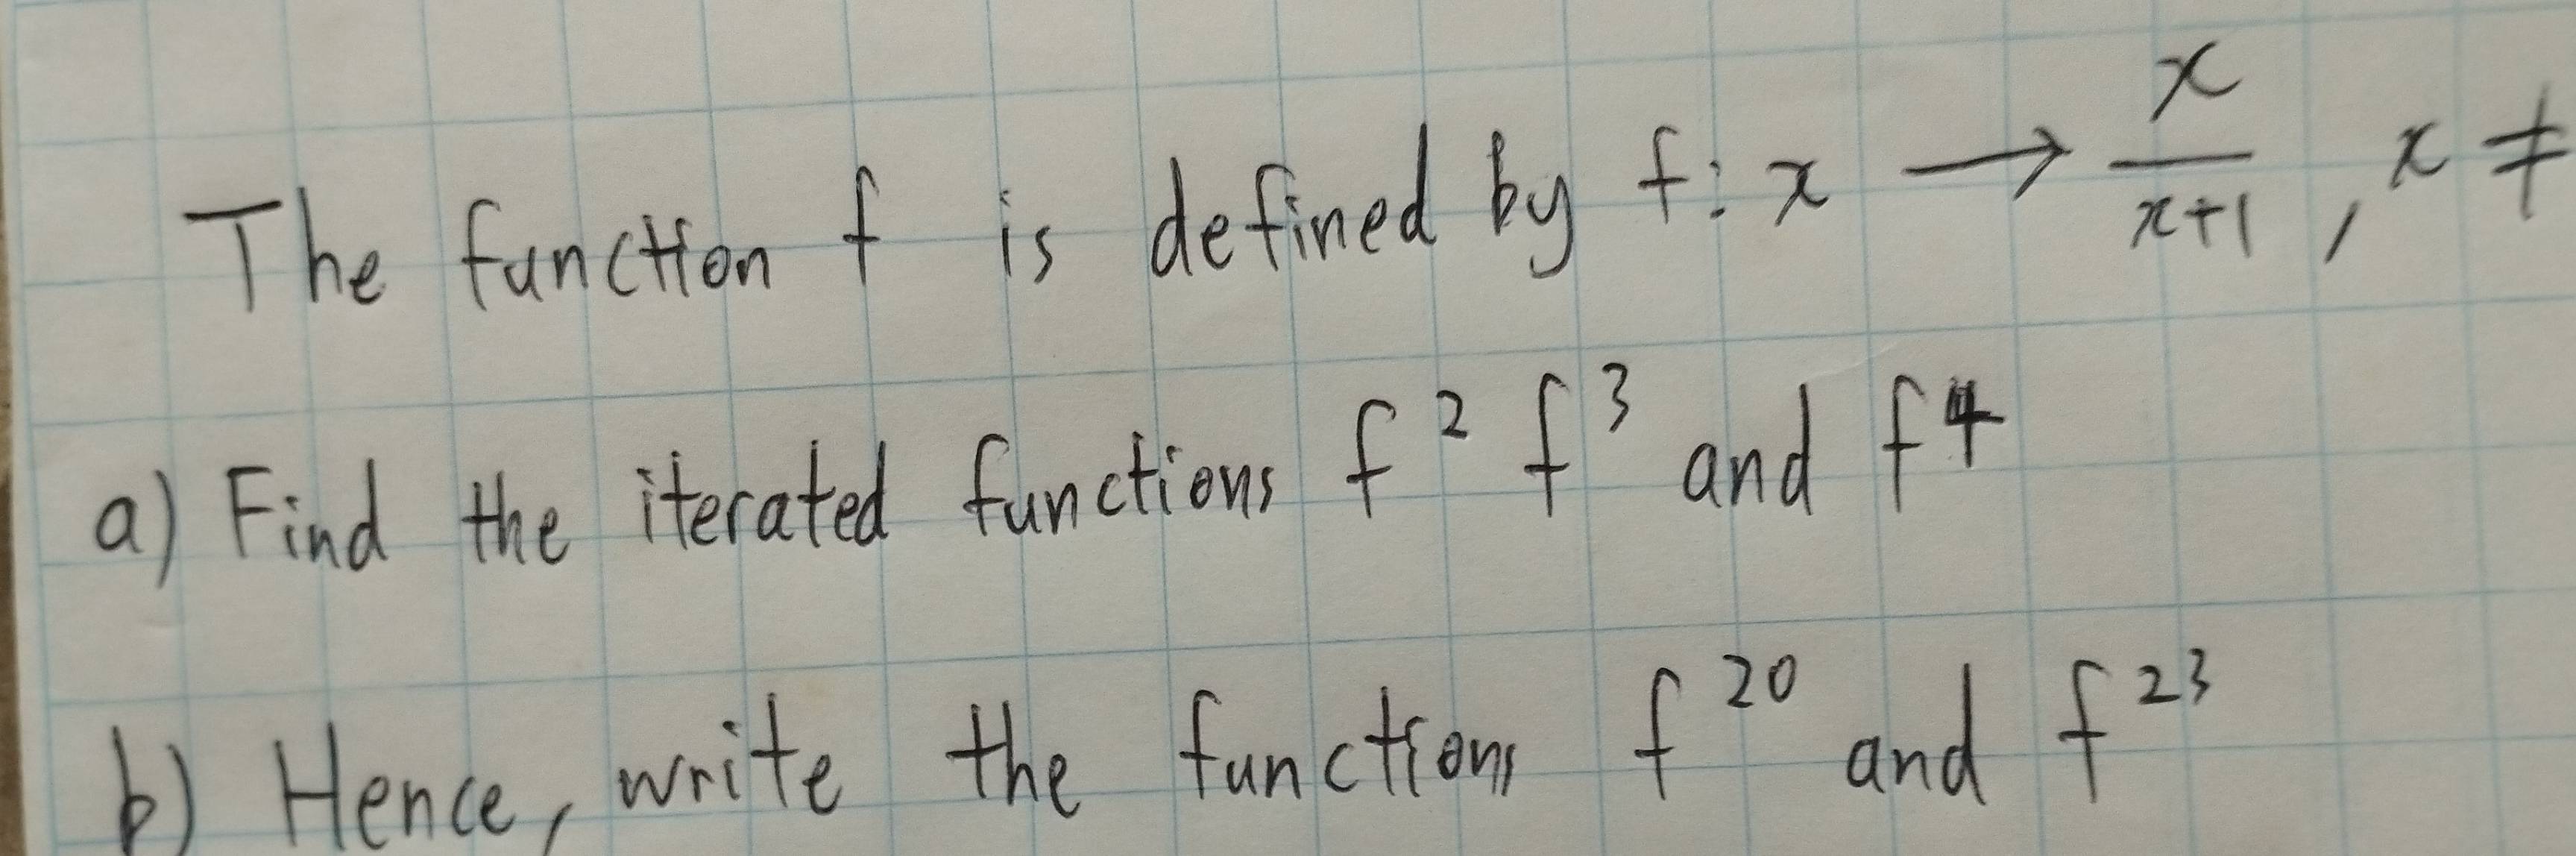 The function f is defined by f: x → x/(x+1), x ≠
a) Find the iterated functions f² f³ and f⁴
b) Hence, write the functions f²⁰ and f²³